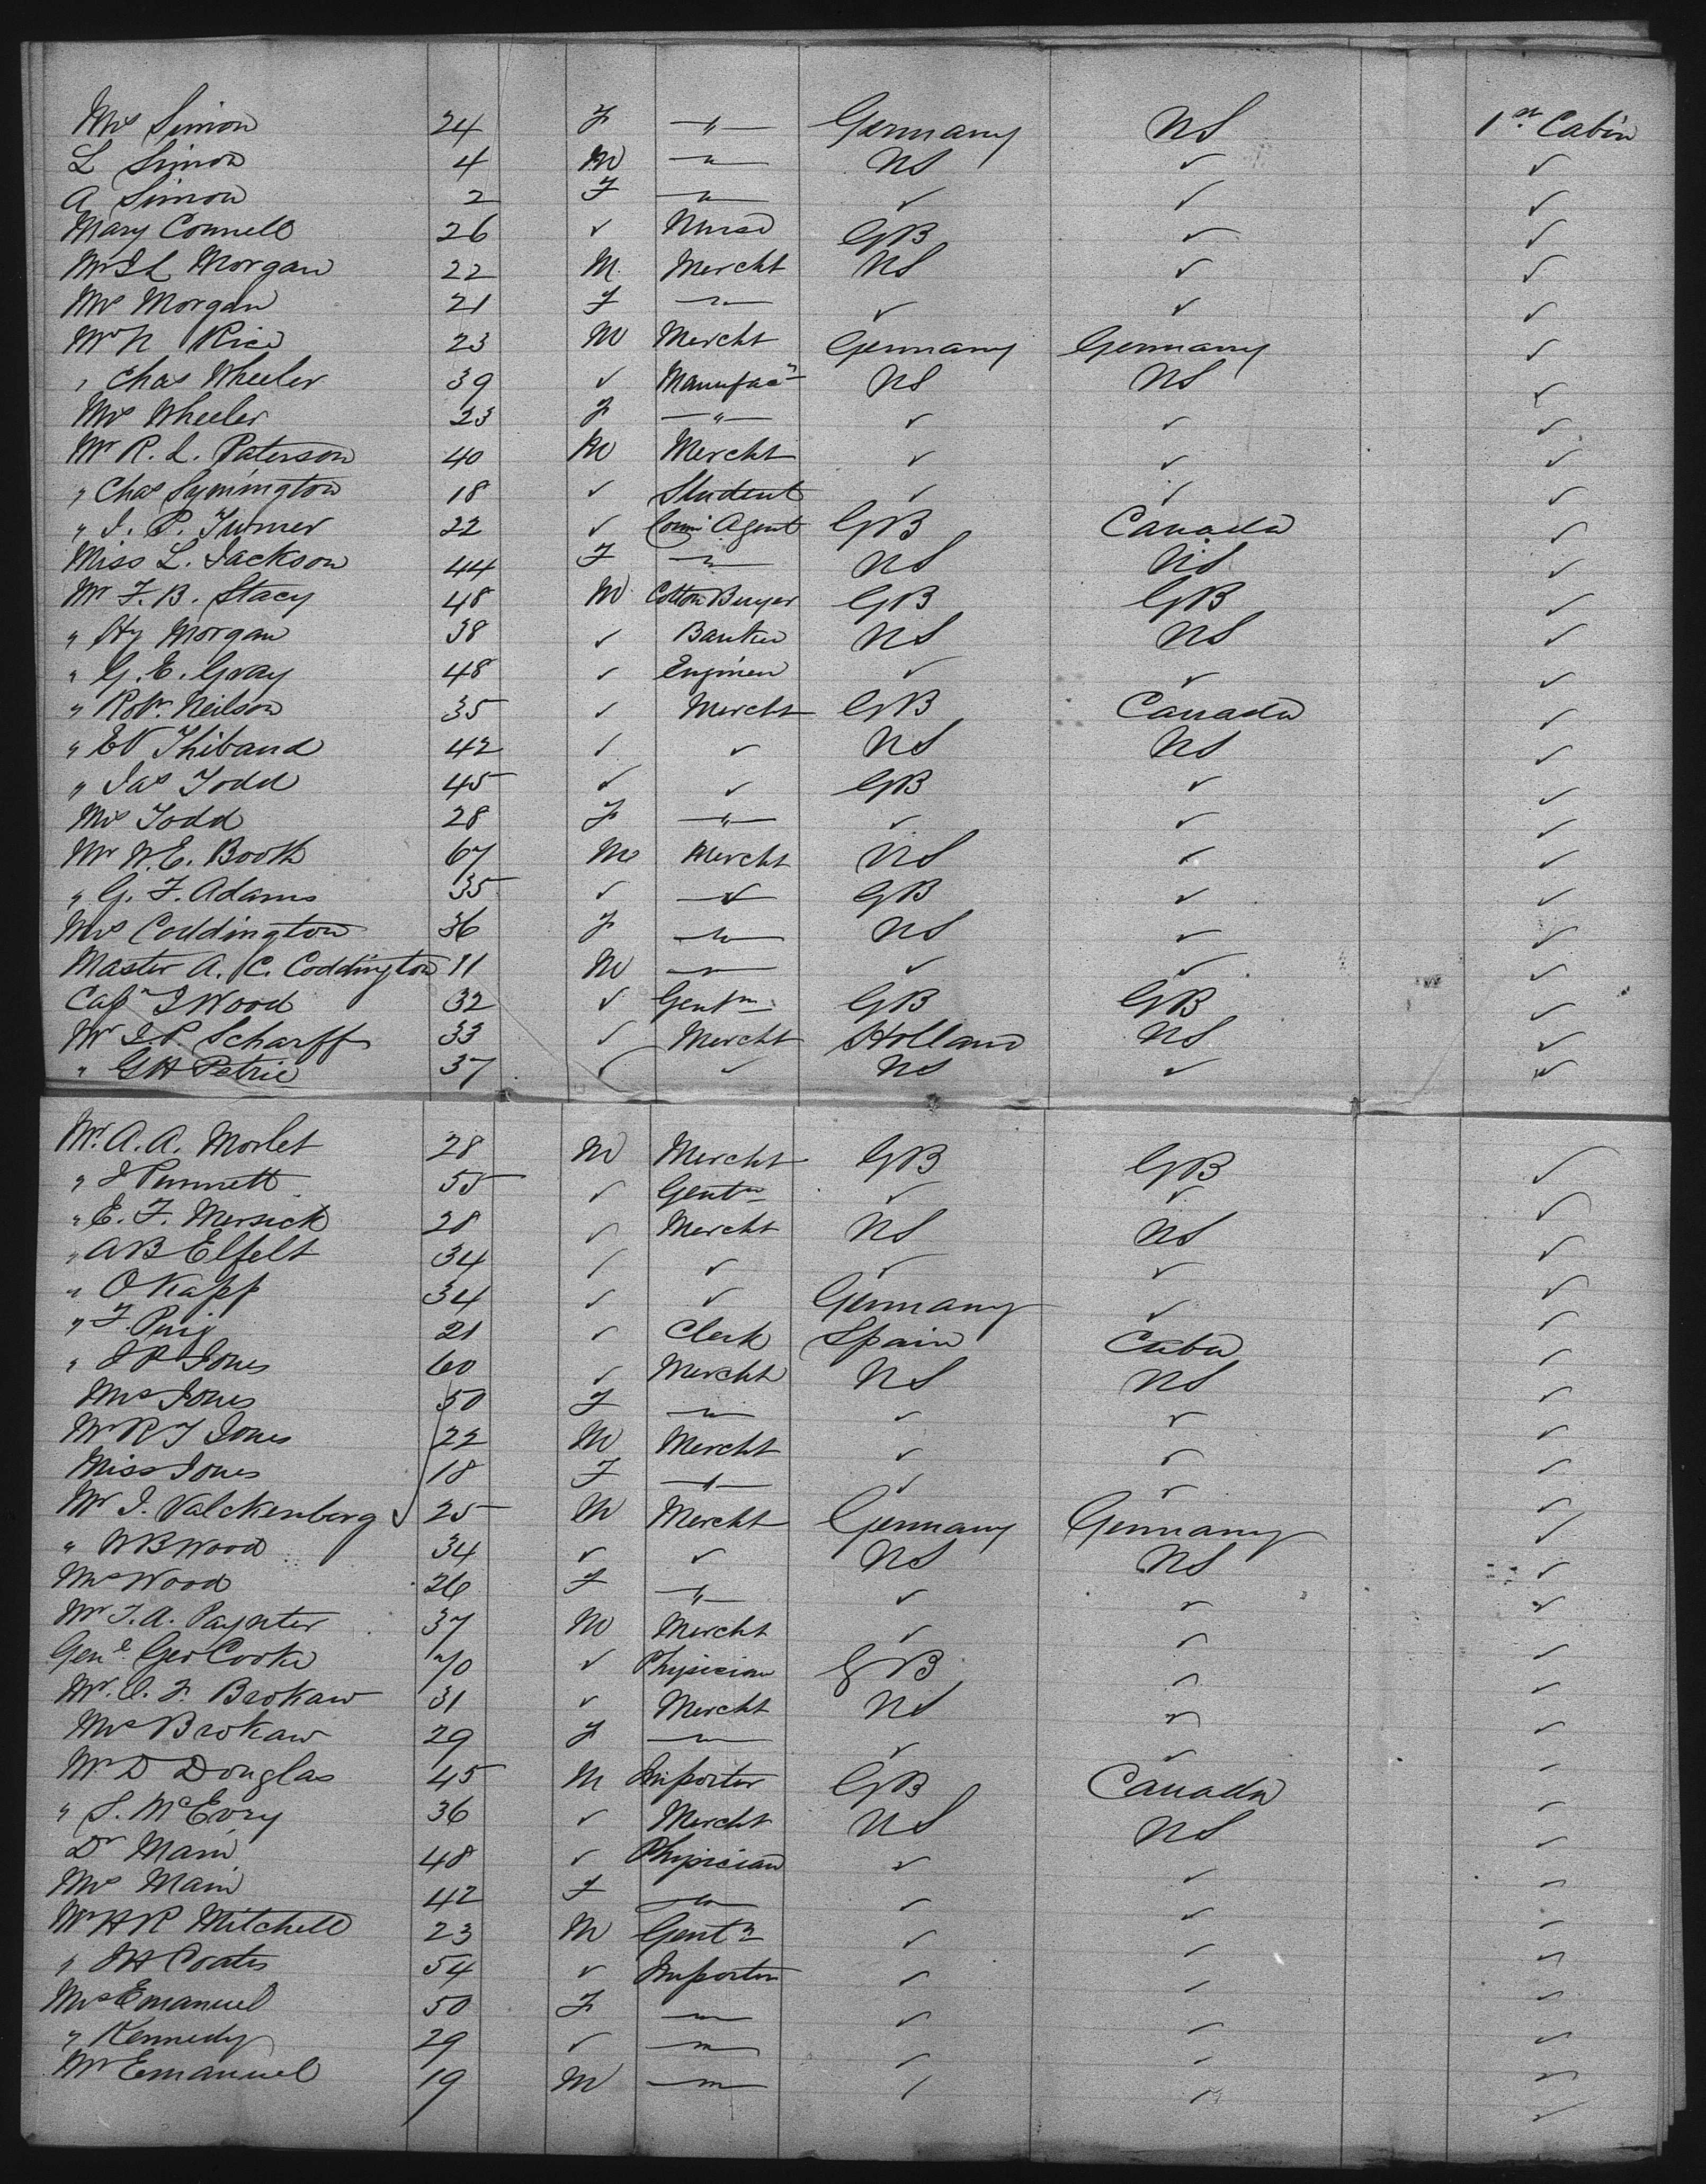 Mrs Simon 24 F —"— Germany US 1st Cabin
L Simon 4 M —"— US ✓ ✓
A Simon 2 F —"— ✓ ✓ ✓
Mary Connell 26 ✓ Nurse GB ✓ ✓
Mr I L Morgan 22 M Mercht US ✓ ✓
Mrs Morgan 21 F —"— ✓ ✓ ✓
Mr N Rice 23 M Mercht Germany Germany ✓
" Chas Wheeler 39 ✓ Manufacr US US ✓
Mrs Wheeler 23 F —"— ✓ ✓ ✓
Mr R. L. Paterson 40 M Mercht ✓ ✓ ✓
" Chas Symington 18 ✓ Student ✓ ✓ ✓
" J. P. Turner 22 ✓ Comn Agent GB Canada ✓
Miss L. Jackson 44 F —"— US US ✓
Mr F. B. Stacy 48 M Cotton Buyer GB GB ✓
" Hy Morgan 38 ✓ Banker US US ✓
" G. E. Gray 48 ✓ Engineer ✓ ✓ ✓
" Robt. Neilson 35 ✓ Mercht GB Canada ✓
" EV Thibaud 42 ✓ ✓ US US ✓
" Jas Todd 45 ✓ ✓ GB ✓ ✓
Mrs Todd 28 F —"— ✓ ✓ ✓
Mr W. E. Booth 67 M Mercht US ✓ ✓
" G. F. Adams 35 ✓ ✓ GB ✓ ✓
Mrs Coddington 36 F —"— US ✓ ✓
Master A. C. Coddington 11 M —"— ✓ ✓ ✓
Capn J Wood 32 ✓ Gentm GB GB ✓
Mr J. P Scharff 33 ✓ Mercht Holland US ✓
" G H Petrie 37 ✓ ✓ US ✓ ✓
Mr. A. A. Morlet 28 M Mercht GB GB ✓
" J Punnett 55 ✓ Gentm ✓ ✓ ✓
" E. F. Mersick 28 ✓ Mercht US US ✓
" A B Elfelt 34 ✓ ✓ ✓ ✓ ✓
" O Kapp 34 ✓ ✓ Germany ✓ ✓
" F. Puig 21 ✓ Clerk Spain Cuba ✓
" J R Jones 60 ✓ Mercht US US ✓
Mrs Jones 50 F —"— ✓ ✓ ✓
Mr R J Jones 22 M Mercht ✓ ✓ ✓
Miss Jones 18 F —"— ✓ ✓ ✓
Mr J. Valckenberg 25 M Mercht Germany Germany ✓
" W B Wood 34 ✓ ✓ US US ✓
Mrs Wood 26 F —"— ✓ ✓ ✓
Mr J. A. Paynter 37 M Mercht ✓ ✓ ✓
Genl Geo Cooke 70 ✓ Physician GB ✓ ✓
Mr. I. F. Brokaw 31 ✓ Mercht US ✓ ✓
Mrs Brokaw 29 F —"— ✓ ✓ ✓
Mr D Douglas 45 M Importer GB Canada ✓
" S. McEvoy 36 ✓ Mercht US US ✓
Dr Main 48 ✓ Physician ✓ ✓ ✓
Mrs Main 42 F —"— ✓ ✓ ✓
Mr H R Mitchell 23 M Gentn ✓ ✓ ✓
" J H Coates 54 ✓ Importer ✓ ✓ ✓
Mrs Emanuel 50 F —"— ✓ ✓ ✓
" Kennedy 29 ✓ —"— ✓ ✓ ✓
Mr Emanuel 19 M —"— ✓ ✓ ✓